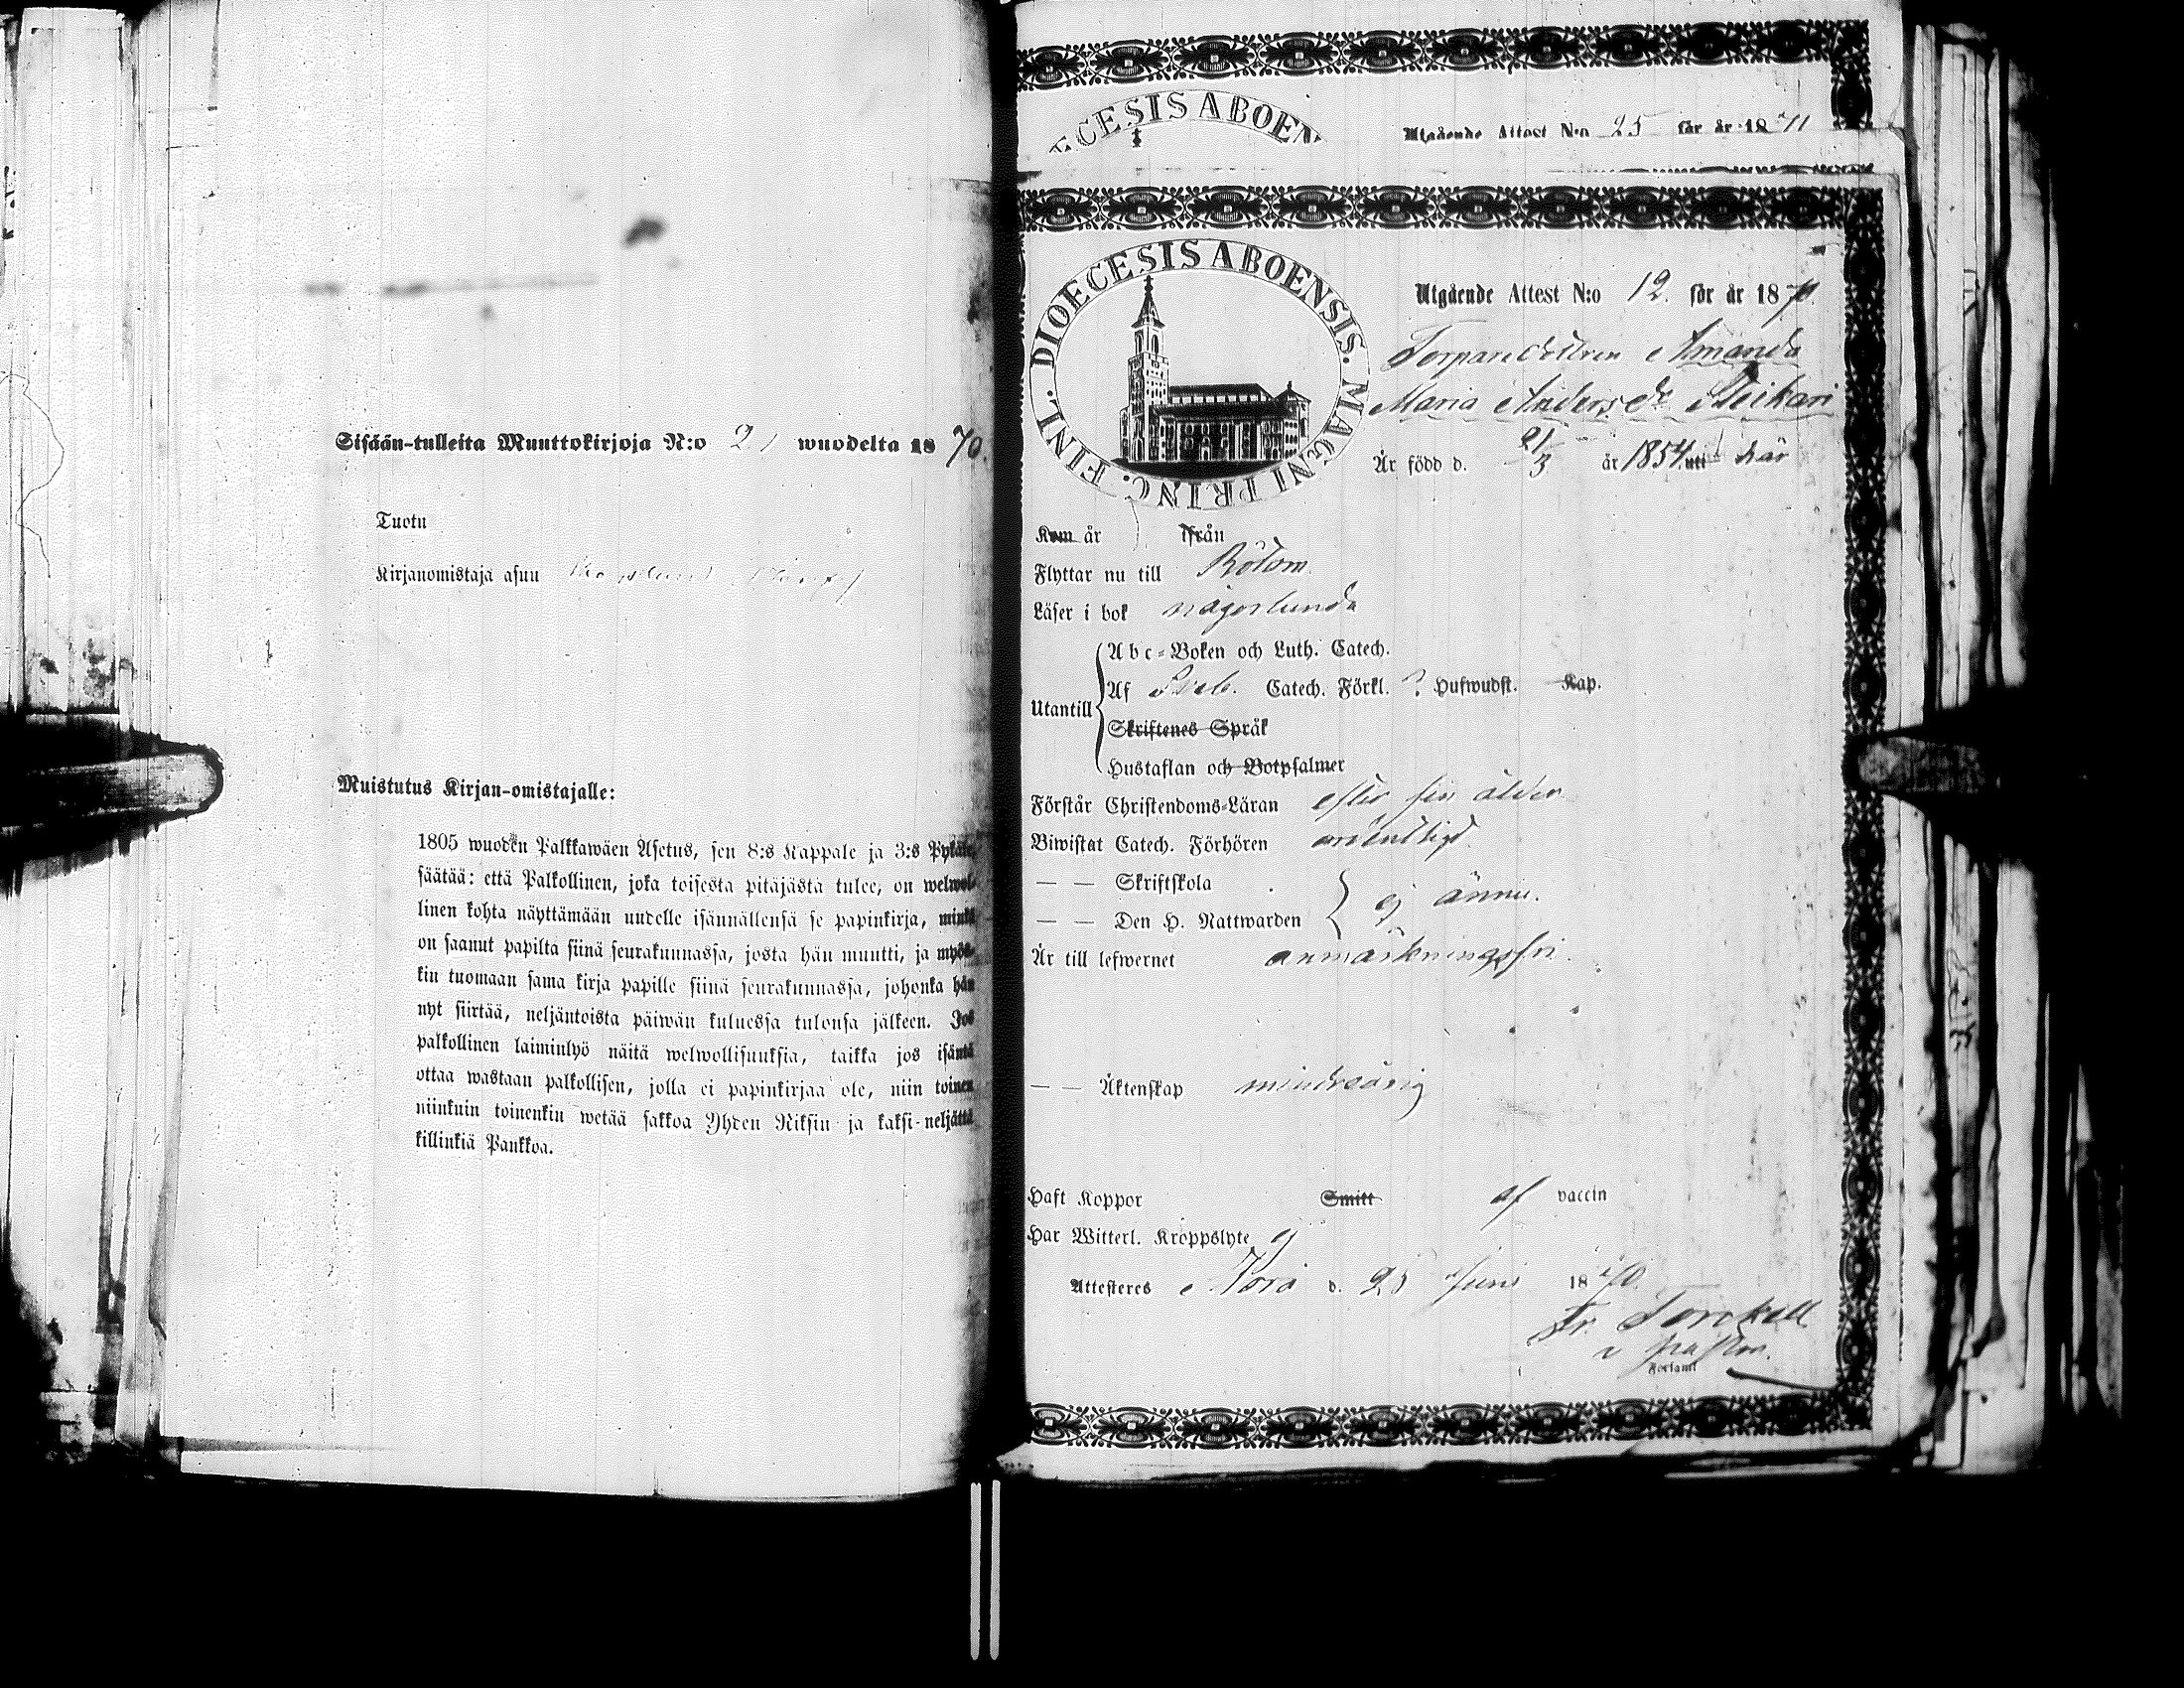 Sisään-tulleita Muuttokirjoja N:o 21 wuodelta 1870.
Tuotu
Kirjanomistaja asuu
Muistutus Kirjan-omistajalle:
1805 wuoden Palkkawäen Asetus, sen 8:s Kappale ja 3:s Pykälä,
säätää: että Palkollinen, joka toisesta pitäjästä tulee, on welwol-
linen kohta näyttämään uudelle isännällensä se papinkirja, minkä
on saanut papilta siinä seurakunnassa, josta hän muutti, ja myös-
kin tuomaan sama kirja papille siinä seurakunnassa, johonka hän
nyt siirtää, neljäntoista päiwän kuluessa tulonsa jälkeen. Jos
palkollinen laiminlyö näitä welwollisuuksia, taikka jos isäntä
ottaa wastaan palkollisen, jolla ei papinkirjaa ole, niin toinen
niinkuin toinenkin wetää sakkoa Yhden Riksin ja kaksi-neljättä
killinkiä Pankkoa.
ECESIS ABOEN
Utgående Attest N:o 25 för år 1871
FINL. DIOECESIS ABOENSIS. MAGNI PRINC.
Utgående Attest N:o 12. för år 1870.
Torpare Amanda
Maria Anders dr
Är född d. 21/3 år 1854 uti här
Kom år ifrån
Flyttar nu till
Läser i bok någorlunda
Utantill
Abc-Boken och Luth. Catech.
Af Sveb. Catech. Förkl. ? Hufwudst. Kap.
Skriftenes Språk
Hustaflan och Botpsalmer
Förstår Christendoms-Läran efter sin ålder
Biwistat Catech. Förhören ordentligt.
— — Skriftskola
— — Den H. Nattwarden
ej ännu.
Är till lefwernet anmärkningsfri.
— — Äktenskap minderårig
Haft Koppor Smitt af vaccin
Har Witterl. Kroppslyte ej
Attesteres Vörå d. 25 Juni 1870
Fr. Torckell
v pastor.
Förlamt